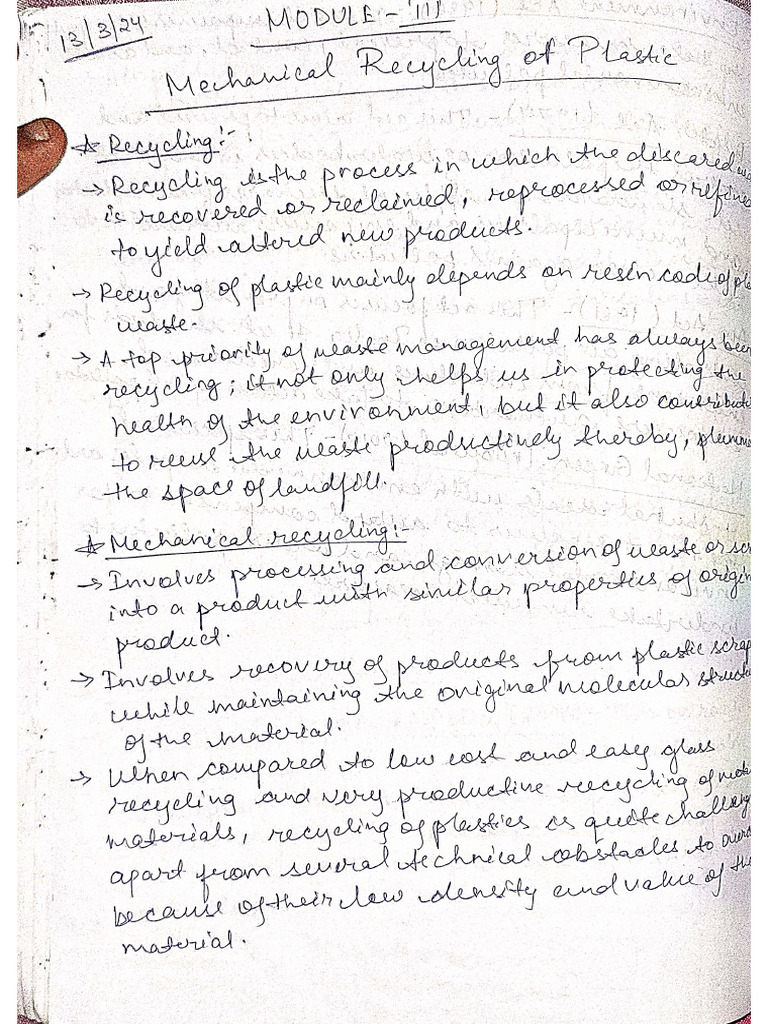 13/3/24
MODULE - III
Mechanical Recycling of Plastic
☆ Recycling:-
→ Recycling is the process in which the discared
is recovered or reclaimed, reprocessed or refine
to yield altered new products.
→ Recycling of plastic mainly depends on resin code of pl
waste.
→ A top priority of waste management has always been
recycling; it not only helps us in protecting the
health of the environment, but it also contribut
to reuse the waste productively thereby,
the space of landfill.
☆ Mechanical recycling:-
→ Involves processing and conversion of waste or scr
into a product with similar properties of origin
product.
→ Involves recovery of products from plastic scrap
while maintaining the original molecular structu
of the material.
→ When compared to low cost and easy glass
recycling and very productive recycling of met
materials, recycling of plastics is quite challeng
apart from several technical obstacles to over
because of their low density and value of the
material.